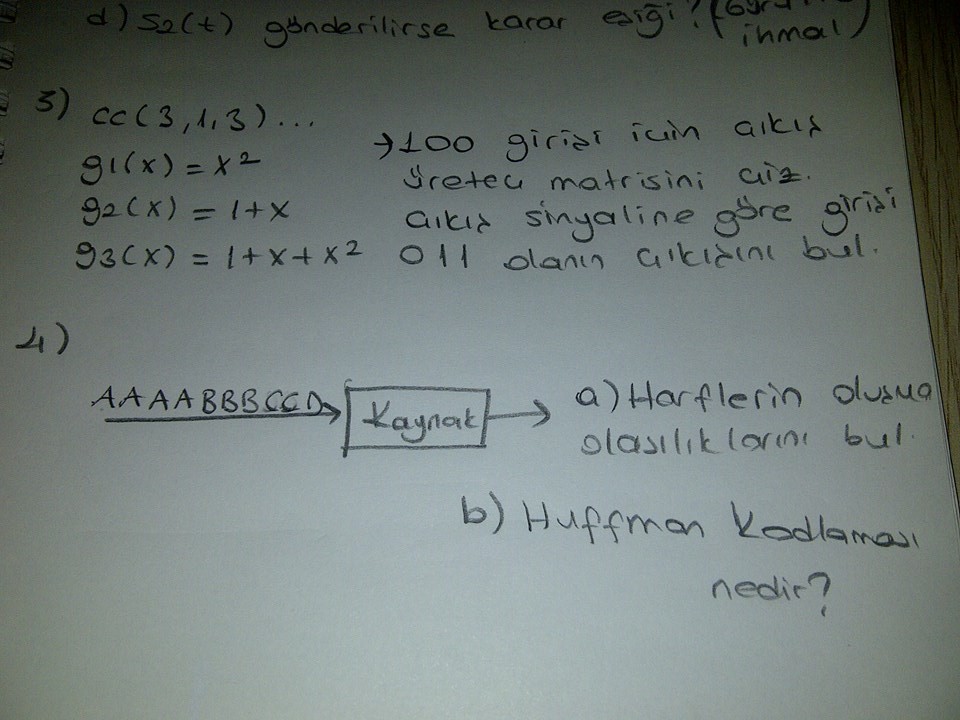 d) S2(t) gönderilirse karar eşiği? (
ihmal)
3) CC(3,1,3)...
g1(x) = x²
g2(x) = 1+x
g3(x) = 1+x+x²
→100 girişi için çıkış
üreteci matrisini çiz.
çıkış sinyaline göre girişi
011 olanın çıkışını bul.
4)
AAAABBBCCD
Kaynak
a) Harflerin oluşma
olasılıklarını bul.
b) Huffman Kodlaması
nedir?